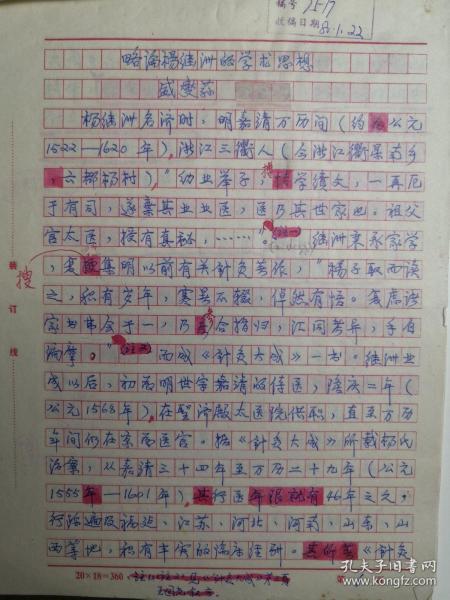 编号 7517
收稿日期 86.1.22
略论杨继洲的学术思想
盛燮荪
杨继洲名济时,明嘉靖万历间(约公元
1522—1620年),浙江三衢人(今浙江衢县南乡
,六都杨村)"幼业举子,博学绩文,一再厄
于有司,遂弃其业业医,医乃其世家也。祖父
官太医,授有真秘,……"(注一)继洲秉承家学
,搜集明以前有关针灸著作,"杨子取而读
之,积有岁年,寒暑不辍,倬然有悟。复虑诸
家书弗会于一,乃参合指归,汇同考异,手自
编摩。"(注二)而成《针灸大成》一书。继洲业
成以后,初为明世宗嘉靖的侍医,隆庆二年(
公元1568年),在圣济殿太医院供职,直至万历
年间仍在京为医官。据《针灸大成》所载杨氏
治案,从嘉靖三十四年至万历二十九年(公元
1555年—1601年),行医 46年之久,
行踪遍及福建,江苏,河北,河南,山东,山
西等地,积有丰富的临床经验。其所著《针灸
20×18=360
装
订
线
搜